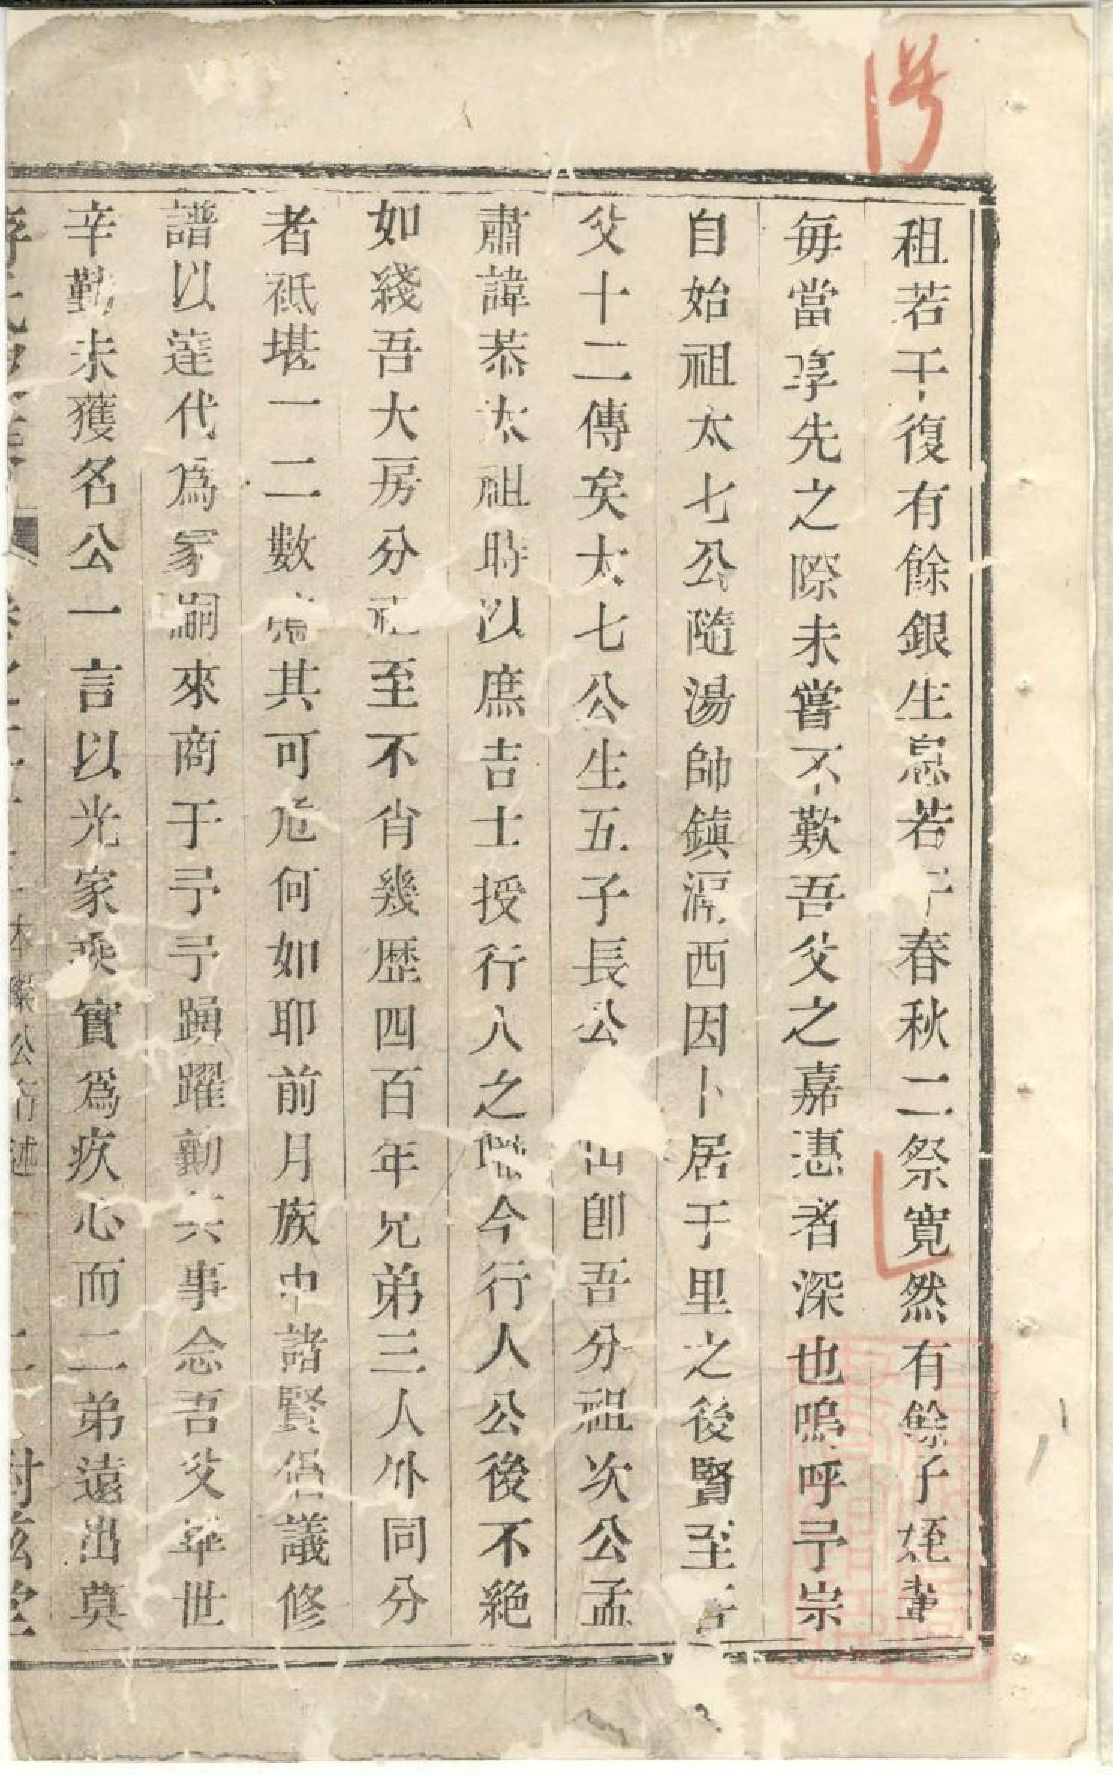 租若干復有餘銀生息若干春秋二祭寛然有餘子姪輩
毎當享先之際未嘗不歎吾父之嘉惠者深也嗚呼予宗
自始祖太七公隨湯帥鎮滆西因卜居于里之後賢至吾
父十二傳矣太七公生五子長公 卽吾分祖次公孟
肅諱恭太祖時以庶吉士授行人之職今行人公後不絶
如綫吾大房分祖至不肖幾歴四百年兄弟三人外同分
者祗堪一二數 其可危何如耶前月族中諸賢倡議修
譜以蓮代爲冢嗣來商于予予踴躍勷其事念吾父畢世
辛勤未獲名公一言以光家乗實爲疚心而二弟遠出莫
卷之